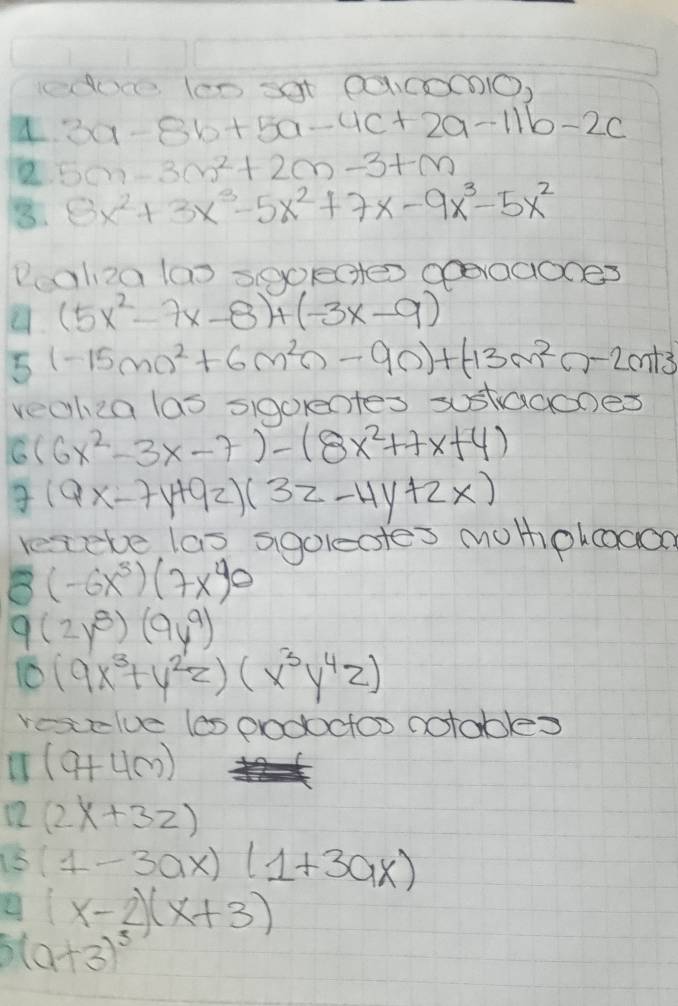 reduce los sgt polinomio,
1. 3a - 8b + 5a - 4c + 2a - 11b - 2c
2. 5m - 3m² + 2m - 3 + m
3. 8x² + 3x³ - 5x² + 7x - 9x³ - 5x²
Realiza las siguientes operaciones
4. (5x² - 7x - 8) + (-3x - 9)
5 (-15mn² + 6m²n - 9n) + (-13m²n - 2m+3
realiza las siguientes sustracciones
6 (6x² - 3x - 7) - (8x² + 7x + 4)
7 (9x - 7y + 9z) (3z - 4y + 2x)
resuelve las siguientes multiplicacion
8 (-6x³) (7x⁴)
9 (2y⁸) (9y⁹)
10 (9x³ + y²z) (x³y⁴z)
resuelve los productos notables
11 (9 + 4m)
12 (2x + 3z)
13 (1 - 3ax) (1 + 3ax)
(x - 2)(x + 3)
5 (a + 3)³